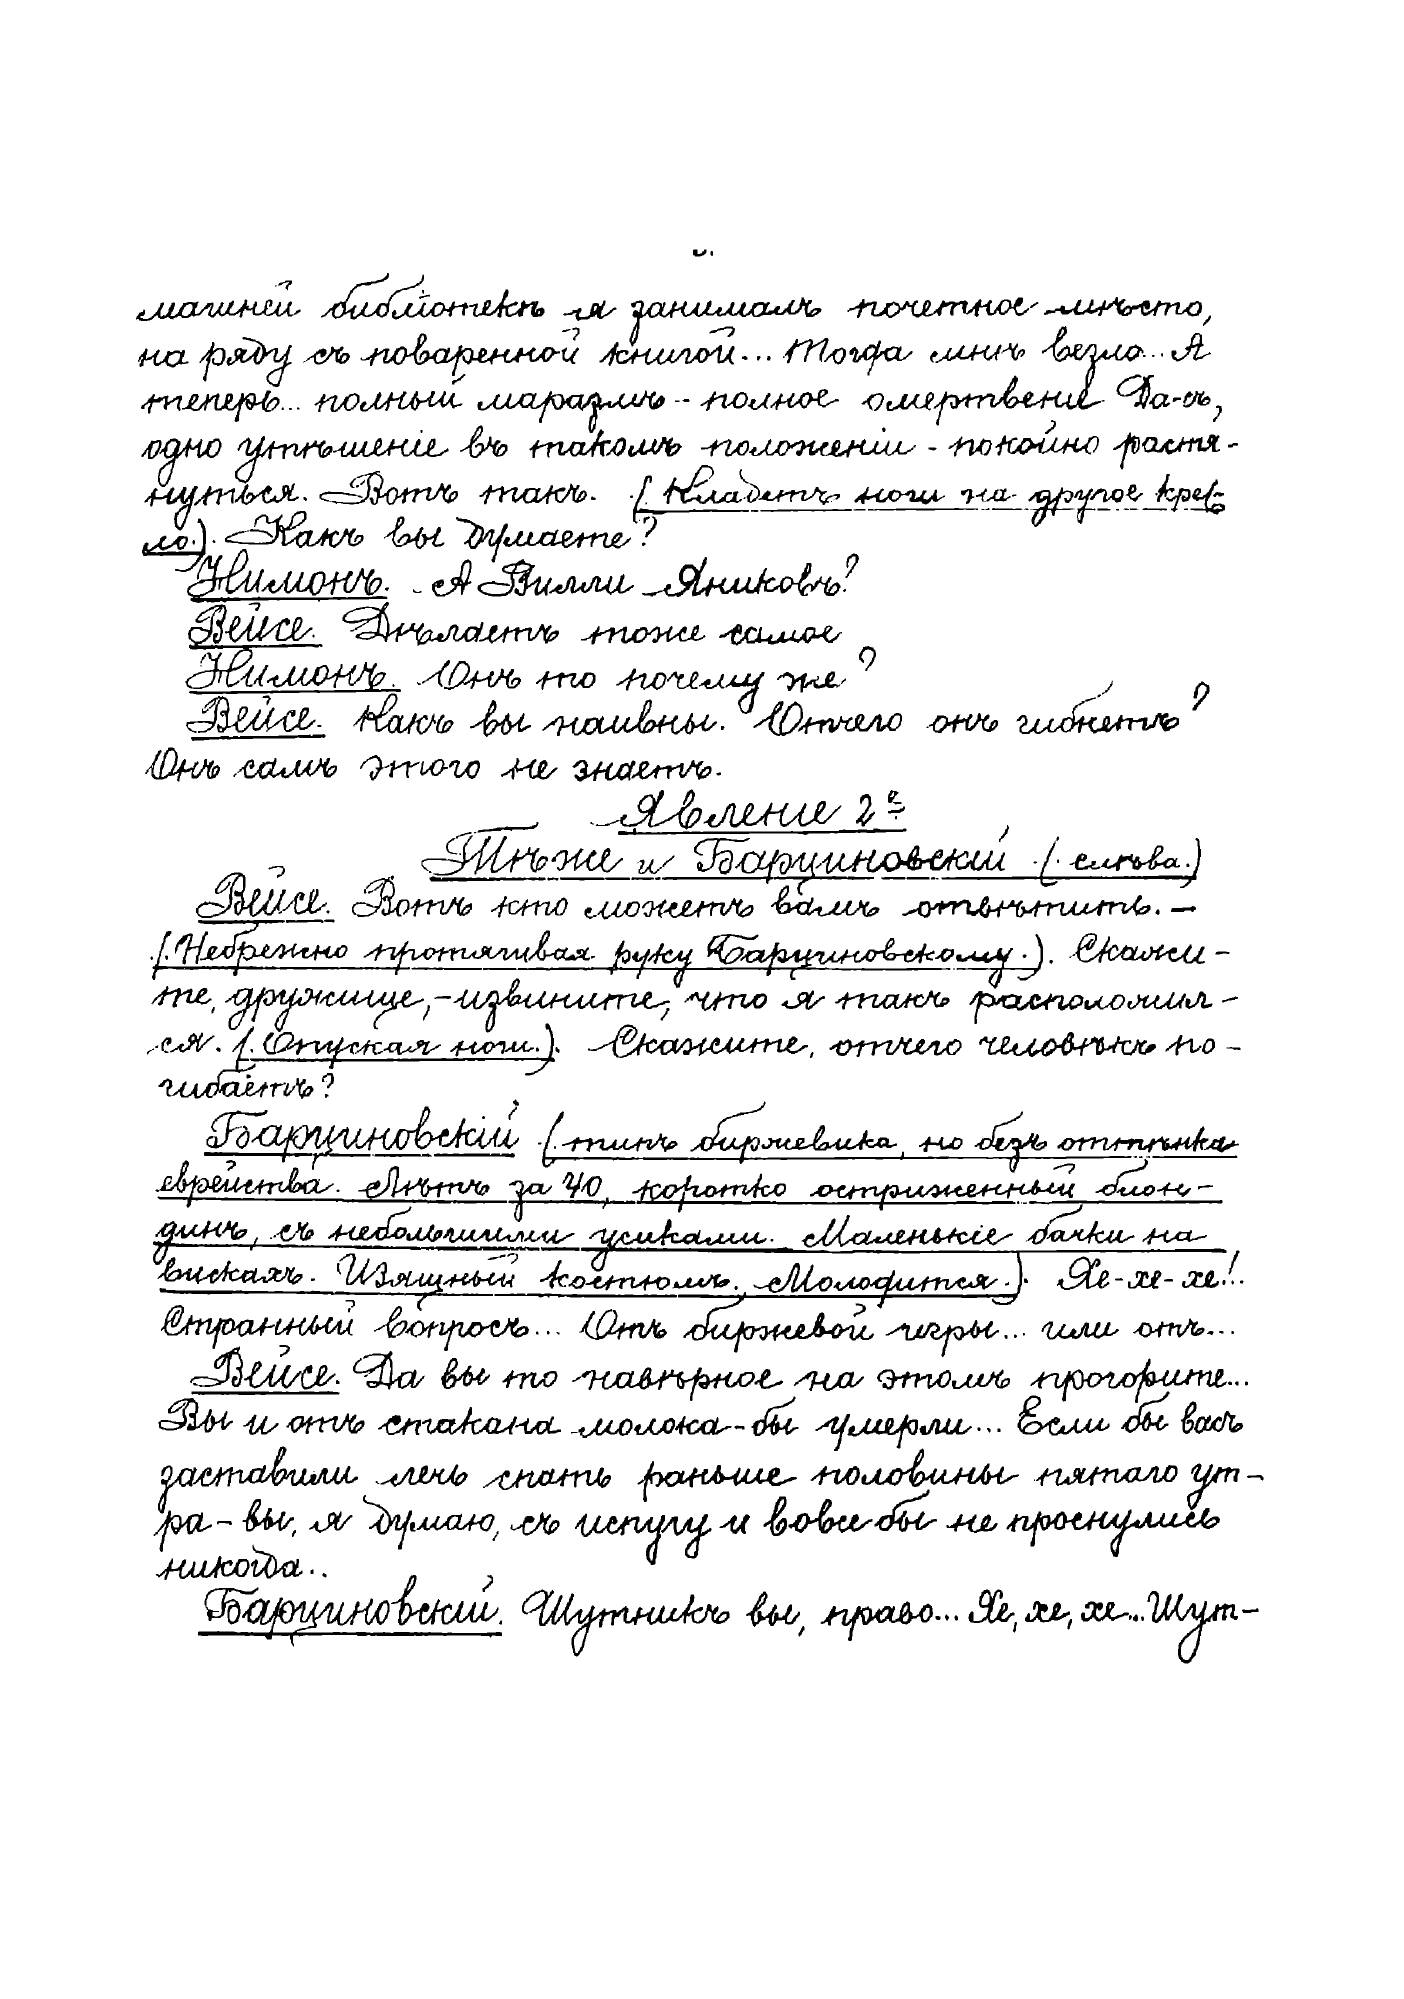 машней библіотекѣ я занималъ почетное мѣсто,
на ряду съ поваренной книгой... Тогда мнѣ везло... А
теперь... полный маразмъ -- полное омертвеніе Да-съ,
одно утѣшеніе въ такомъ положеніи - покойно растя-
нуться. Вотъ такъ. (Кладетъ ноги на другое крес-
ло.). Какъ вы думаете?
Нимонъ. - А Вилли Яниковъ?
Вейсе. Дѣлаетъ тоже самое
Нимонъ. Онъ то почему же?
Вейсе. Какъ вы наивны. Отчего онъ гибнетъ?
Онъ самъ этого не знаетъ.
Явленіе 2е
Тѣже и Барциновскій (слѣва.)
Вейсе. Вотъ кто можетъ вамъ отвѣтить. -
(Небрежно протягивая руку Барциновскому.). Скажи-
те, дружище, - извините, что я такъ расположил-
ся. (Опуская ноги.). Скажите, отчего человѣкъ по-
гибаетъ?
Барциновскій (типъ биржевика, но безъ оттѣнка
еврейства. Лѣтъ за 40, коротко остриженный блон-
динъ, съ небольшими усиками. Маленькіе бачки на
вискахъ. Изящный костюмъ. Молодится.). Хе-хе-хе!..
Странный вопросъ... Отъ биржевой игры... или отъ...
Вейсе. Да вы то навѣрное на этомъ прогорите...
Вы и отъ стакана молока-бы умерли... Если бы васъ
заставили лечь спать раньше половины пятаго ут-
ра - вы, я думаю, съ испугу и вовсе бы не проснулись
никогда..
Барциновскій. Шутникъ вы, право... Хе, хе, хе... Шут-